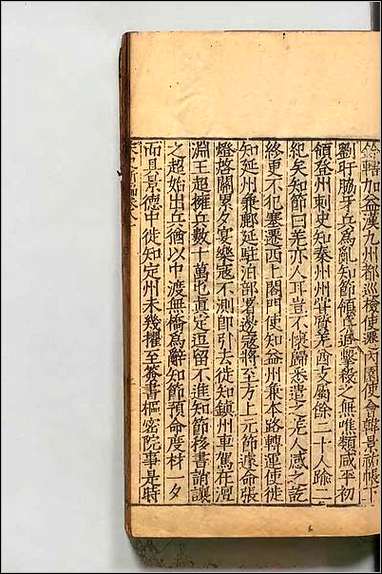 鈐轄加益漢九州都巡檢使兼內園使會韓景祐帳下
劉旴脇牙兵爲亂知節領兵追擊殺之無唯類咸平初
領登州刺史知秦州州嘗質羌酋支屬餘二十人踰二
紀矣知節曰羌亦人耳豈不懷歸悉遣之羌人感之訖
終更不犯塞遷西上閤門使知益州兼本路轉運使徙
知延州兼鄜延駐泊部署邊寇將至方上元節遽命張
燈啓關累夕宴樂寇不測即引去徙知鎮州車駕在澶
淵王超擁兵數十萬屯眞定逗留不進知節移書誚讓
之超始出兵猶以中渡無橋爲辭知節預命度材一夕
而具景德中徙知定州未幾擢至簽書樞密院事是時